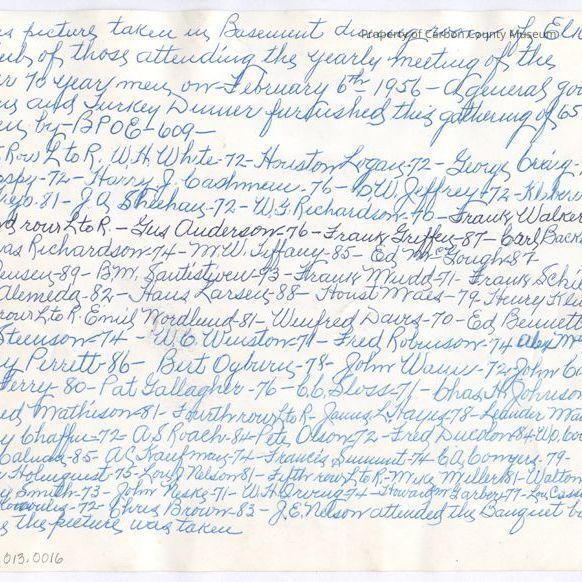 Property of Carbon County Museum
picture taken in Basement of Elk
of those attending the yearly meeting of the
70 year men on February 6th 1956 - A general good
and Turkey Dinner furnished this gathering of 65
by - BPOE - 609 -
Row L to R. W.H. White - 72 - Houston Logan - 72 - George Craig -
72 - Harry J. Cashmeu - 76 - D.W. Jeffrey - 72 -
81 - J.A. Sheehan - 72 - W.G. Richardson - 76 - Frank Walker
row L to R - Gus Anderson - 76 - Frank Griffey - 87 - Carl Back
Richardson - 74 - M.W. Tiffany - 85 - Ed McGough 87
89 - B.M. 73 - Frank Mudd - 71 - Frank
Alemeda - 82 - Hans Larsen - 88 - Houst Maes - 79 Henry
row L to R. Emil Nordlund - 81 - Winfred Davis - 70 - Ed Bennett
Stenson - 74 - W.C. Winston - 71 - Fred Robinson - 74
Perrett - 86 - Bert Ogburn - 78 - John - 72 - John
Ferry - 80 - Pat Gallagher - 76 - C.C. Gloss - 71 - Chas H. Johnson
Mathison - 81 - Fourth row L to R - James L. Hayes 78 - Leander
Chaffin - 72 - A.S. Roach - 84 - Pete Olson 72 - Fred Ducolon 84
85 - A.C. Kaufman - 74 - Francis Summit - 74 E.A. Conyers - 79 -
Holmquist - 75 - Lou J Nelson 81 - Fifth row L to R - Mike Miller 81 - Walton
Smith - 73 - John Neske 71 - W.H. 74 - Howard M. Larber 77 - Lou
72 - Chris Brown - 83 - J.E. Nelson attended the Banquet
the picture was taken
013.0016